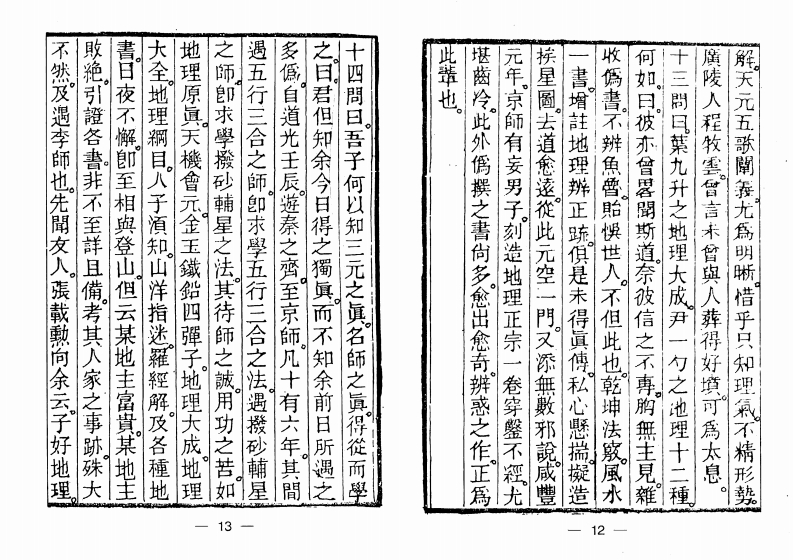 解。天元五歌闡義。尤爲明晰。惜乎只知理氣。不精形勢。
廣陵人程牧雲。曾言未曾與人葬得好墳。可爲太息。
十三問曰。葉九升之地理大成。尹一勺之地理十二種。
何如。曰。彼亦曾畧聞斯道。奈彼信之不專。胸無主見。雜
收僞書。不辨魚魯。貽悞世人。不但此也。乾坤法竅。風水
一書。增註地理辨正疏。俱是未得眞傳。私心懸揣。擬造
挨星圖。去道愈遠。從此元空一門。又添無數邪說。咸豐
元年。京師有妄男子。刻造地理正宗一卷。穿鑿不經。尤
堪齒冷。此外僞撰之書尙多。愈出愈奇。辨惑之作。正爲
此輩也。
— 12 —
十四問曰。吾子何以知三元之眞。名師之眞。得從而學
之。曰。君但知余今日得之獨眞。而不知余前日所遇之
多僞。自道光壬辰。遊秦之齊。至京師。凡十有六年。其間
遇五行三合之師。卽求學五行三合之法。遇撥砂輔星
之師。卽求學撥砂輔星之法。其待師之誠。用功之苦。如
地理原眞。天機會元。金玉鐵鉛。四彈子。地理大成。地理
大全。地理綱目。人子須知。山洋指迷。羅經解。及各種地
書。日夜不懈。卽至相與登山。但云某地主富貴。某地主
敗絶。引證各書。非不至詳且備。考其人家之事跡。殊大
不然。及遇李師也。先聞友人。張載勳向余云。子好地理。
— 13 —